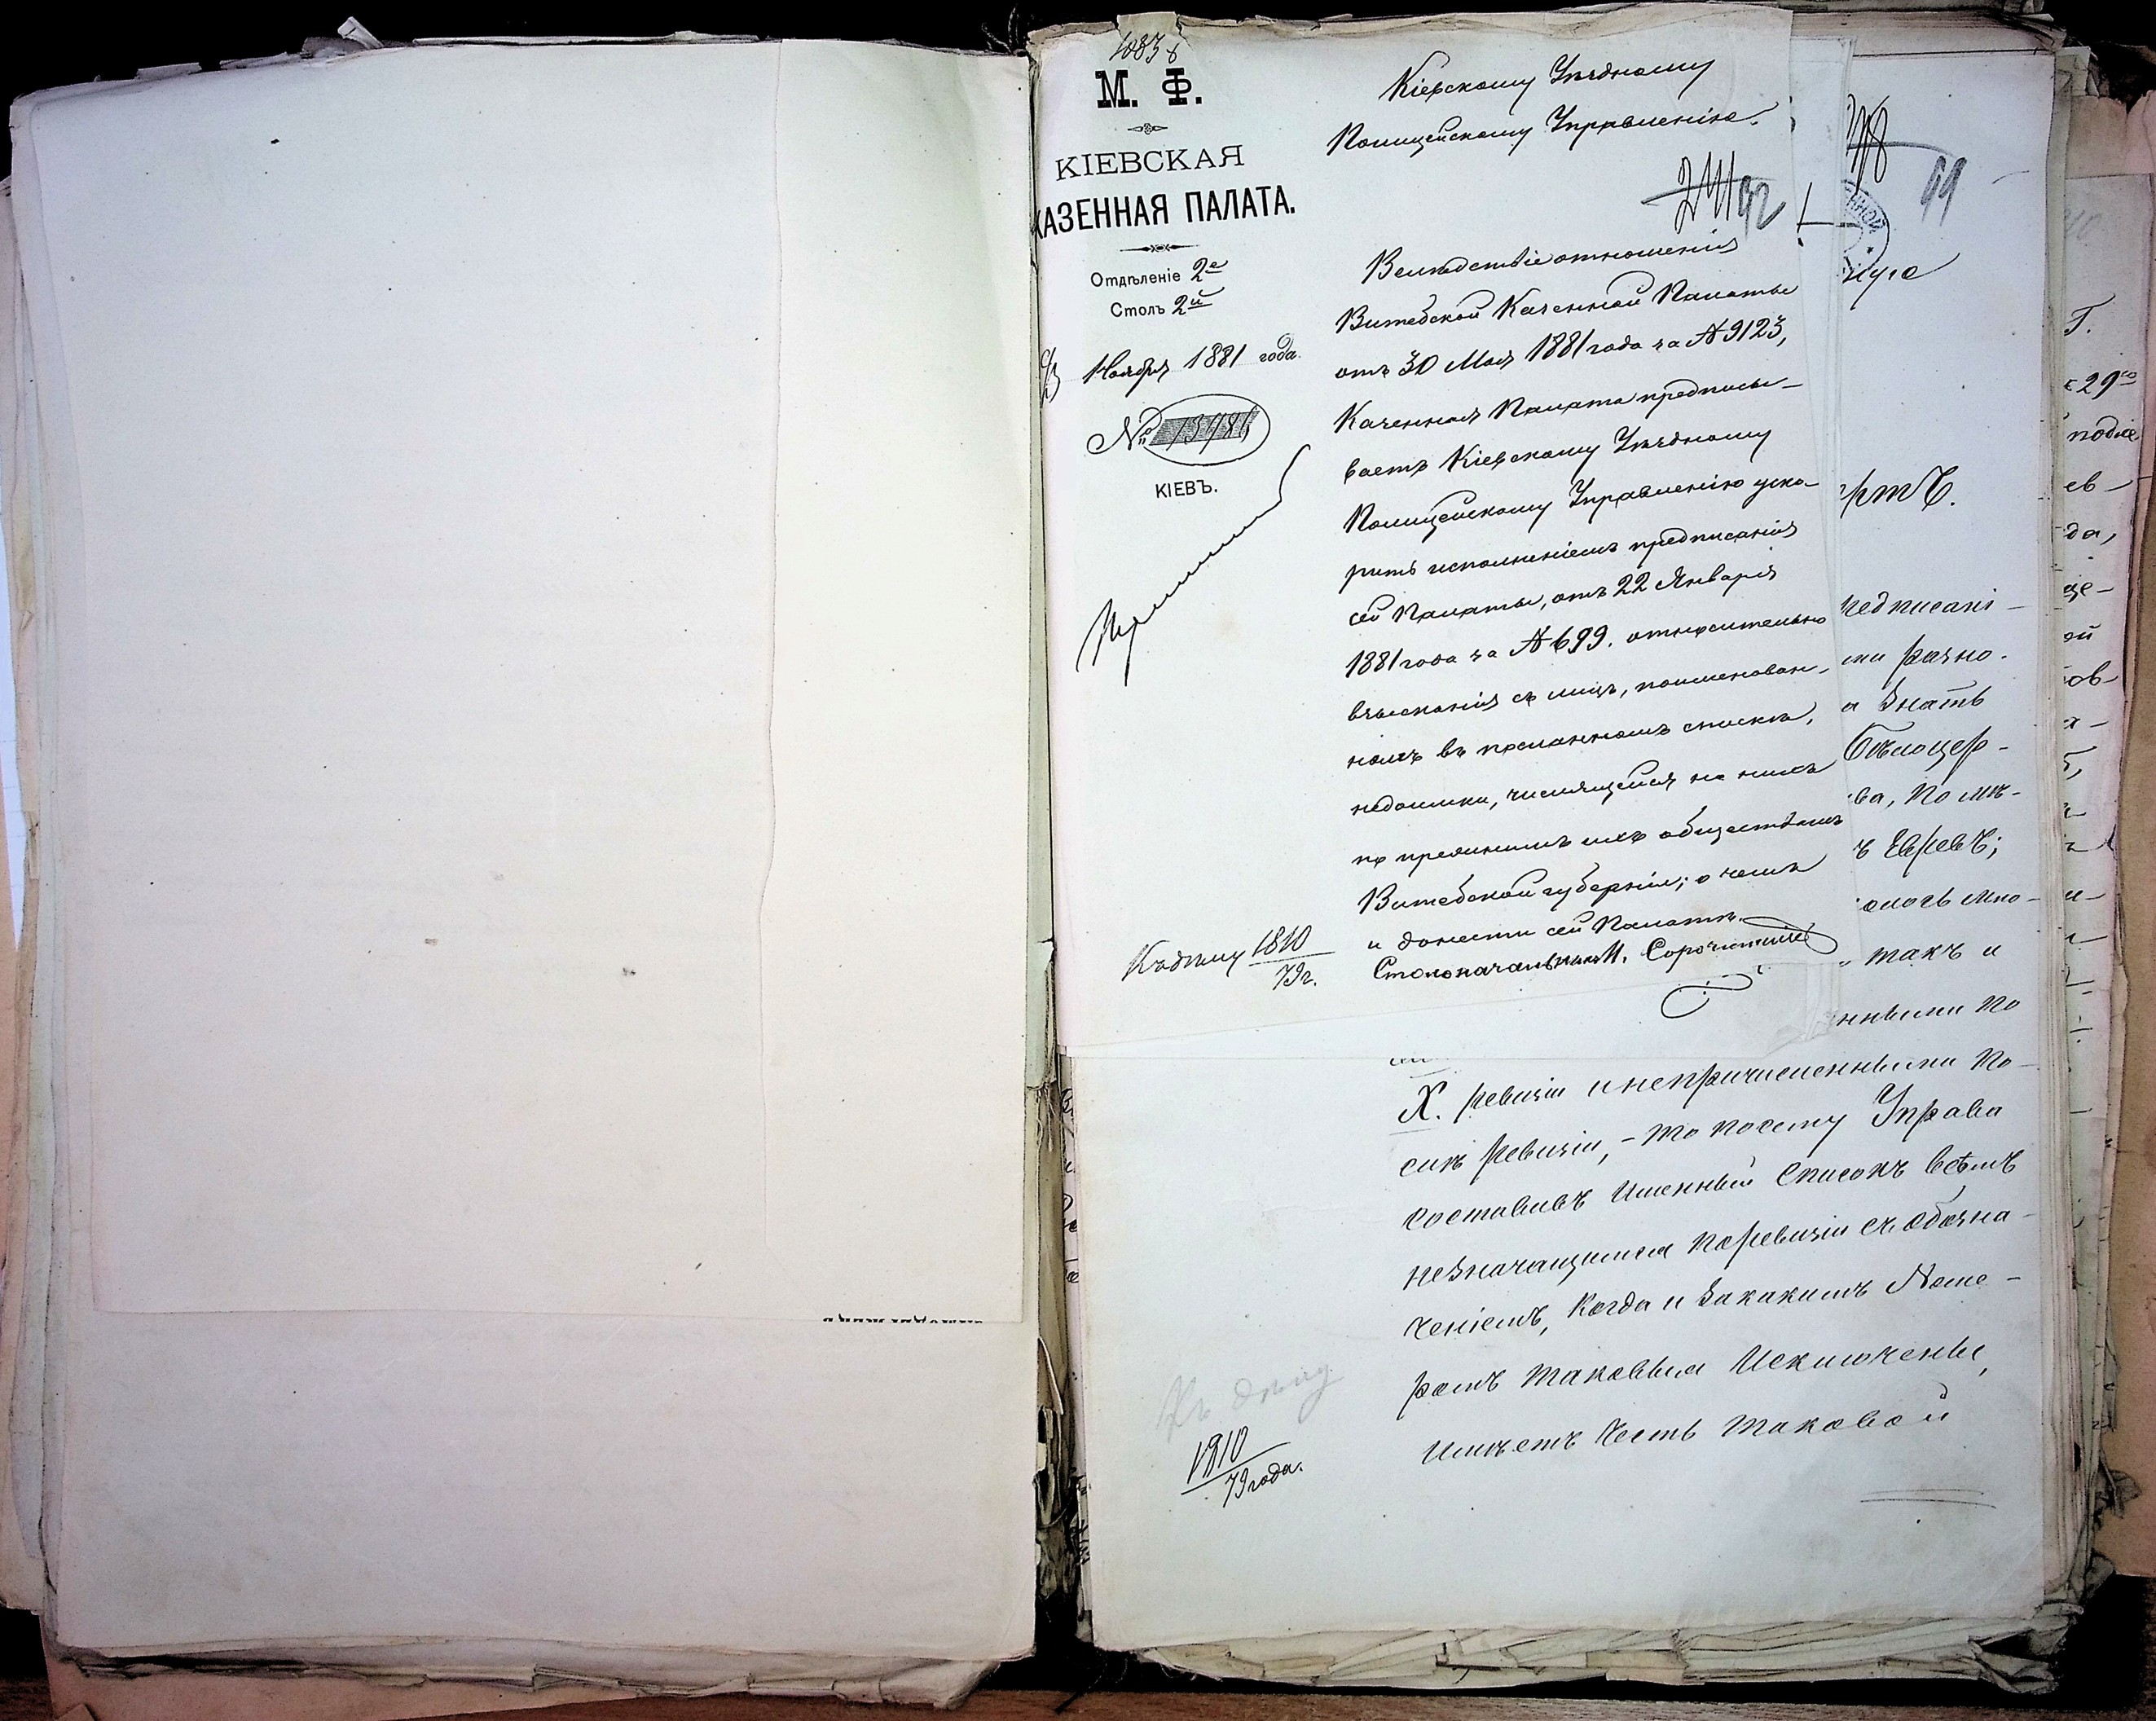 М. Ф.
КІЕВСКАЯ
КАЗЕННАЯ ПАЛАТА.
Отдѣленіе 2е
Столъ 2й
Ноября 1881 года.
№
КІЕВЪ.
Кіевскому Уѣздному
Полицейскому Управленію.
92
Вслѣдствіе отношенія
Витебской Казенной Палаты
отъ 30 Мая 1881 года за № 9123,
Казенная Палата предписы-
ваетъ Кіевскому Уѣздному
Полицейскому Управленію уско-
рить исполненіемъ предписанія
сей Палаты, отъ 22 Января
1881 года за № 699. относительно
взысканія съ лицъ, поименован-
ныхъ въ посланномъ спискѣ,
недоимки, числящейся на нихъ
по прежнимъ ихъ обществамъ
Витебской губерніи; о чемъ
и донести сей Палатѣ.
Столоначальникъ
Къ дѣлу 1810
79 г.
99
редписані-
ми разно.
а знать
Бѣлоцер-
ва, по мѣ-
ъ Евреевъ;
такъ и
нными по
Х. ревизіи и непричисленными по
сію ревизіи, - то посему Управа
составивъ именный списокъ всѣмъ
незначащимся по ревизіи съ обозна-
ченіемъ, когда и за какимъ Номе-
ромъ таковыя исключены,
имѣетъ честь таковой
Къ дѣлу
1810
79 года.
Г.
29го
подле
ев-
да,
ов-